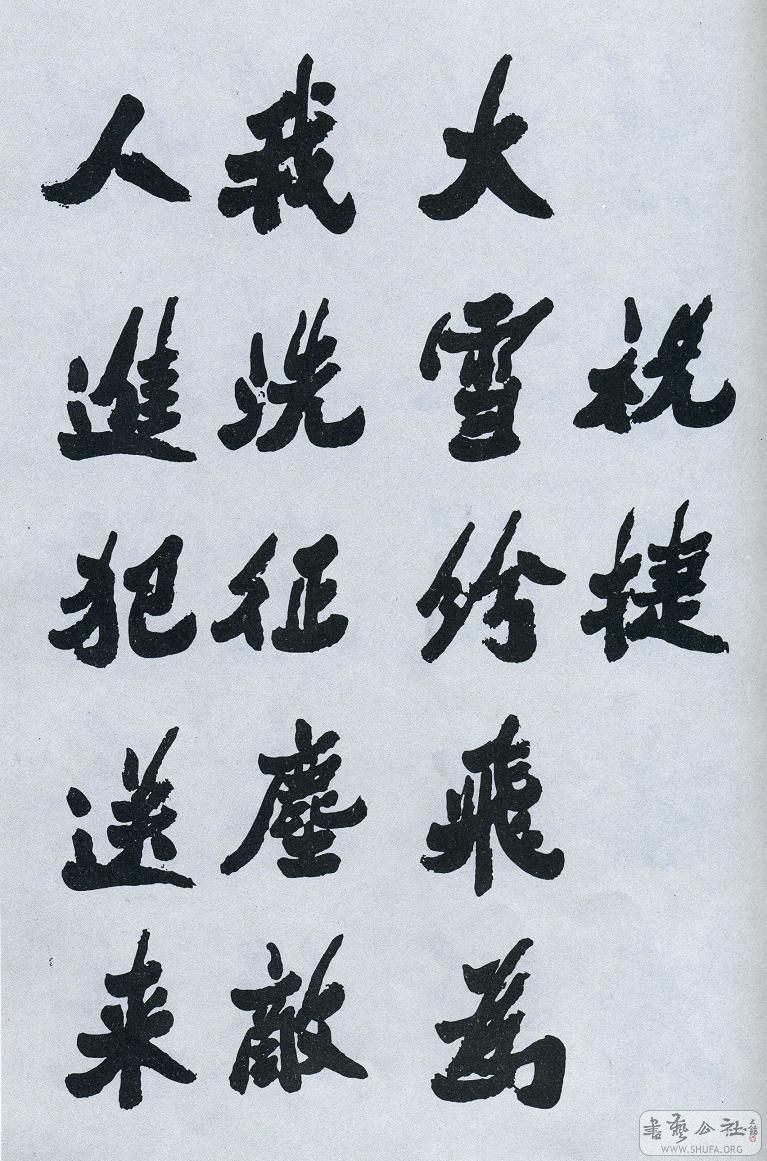 祝捷
大雪紛飛為
我洗征塵敵
人進犯送来
書藝公社
WWW.SHUFA.ORG